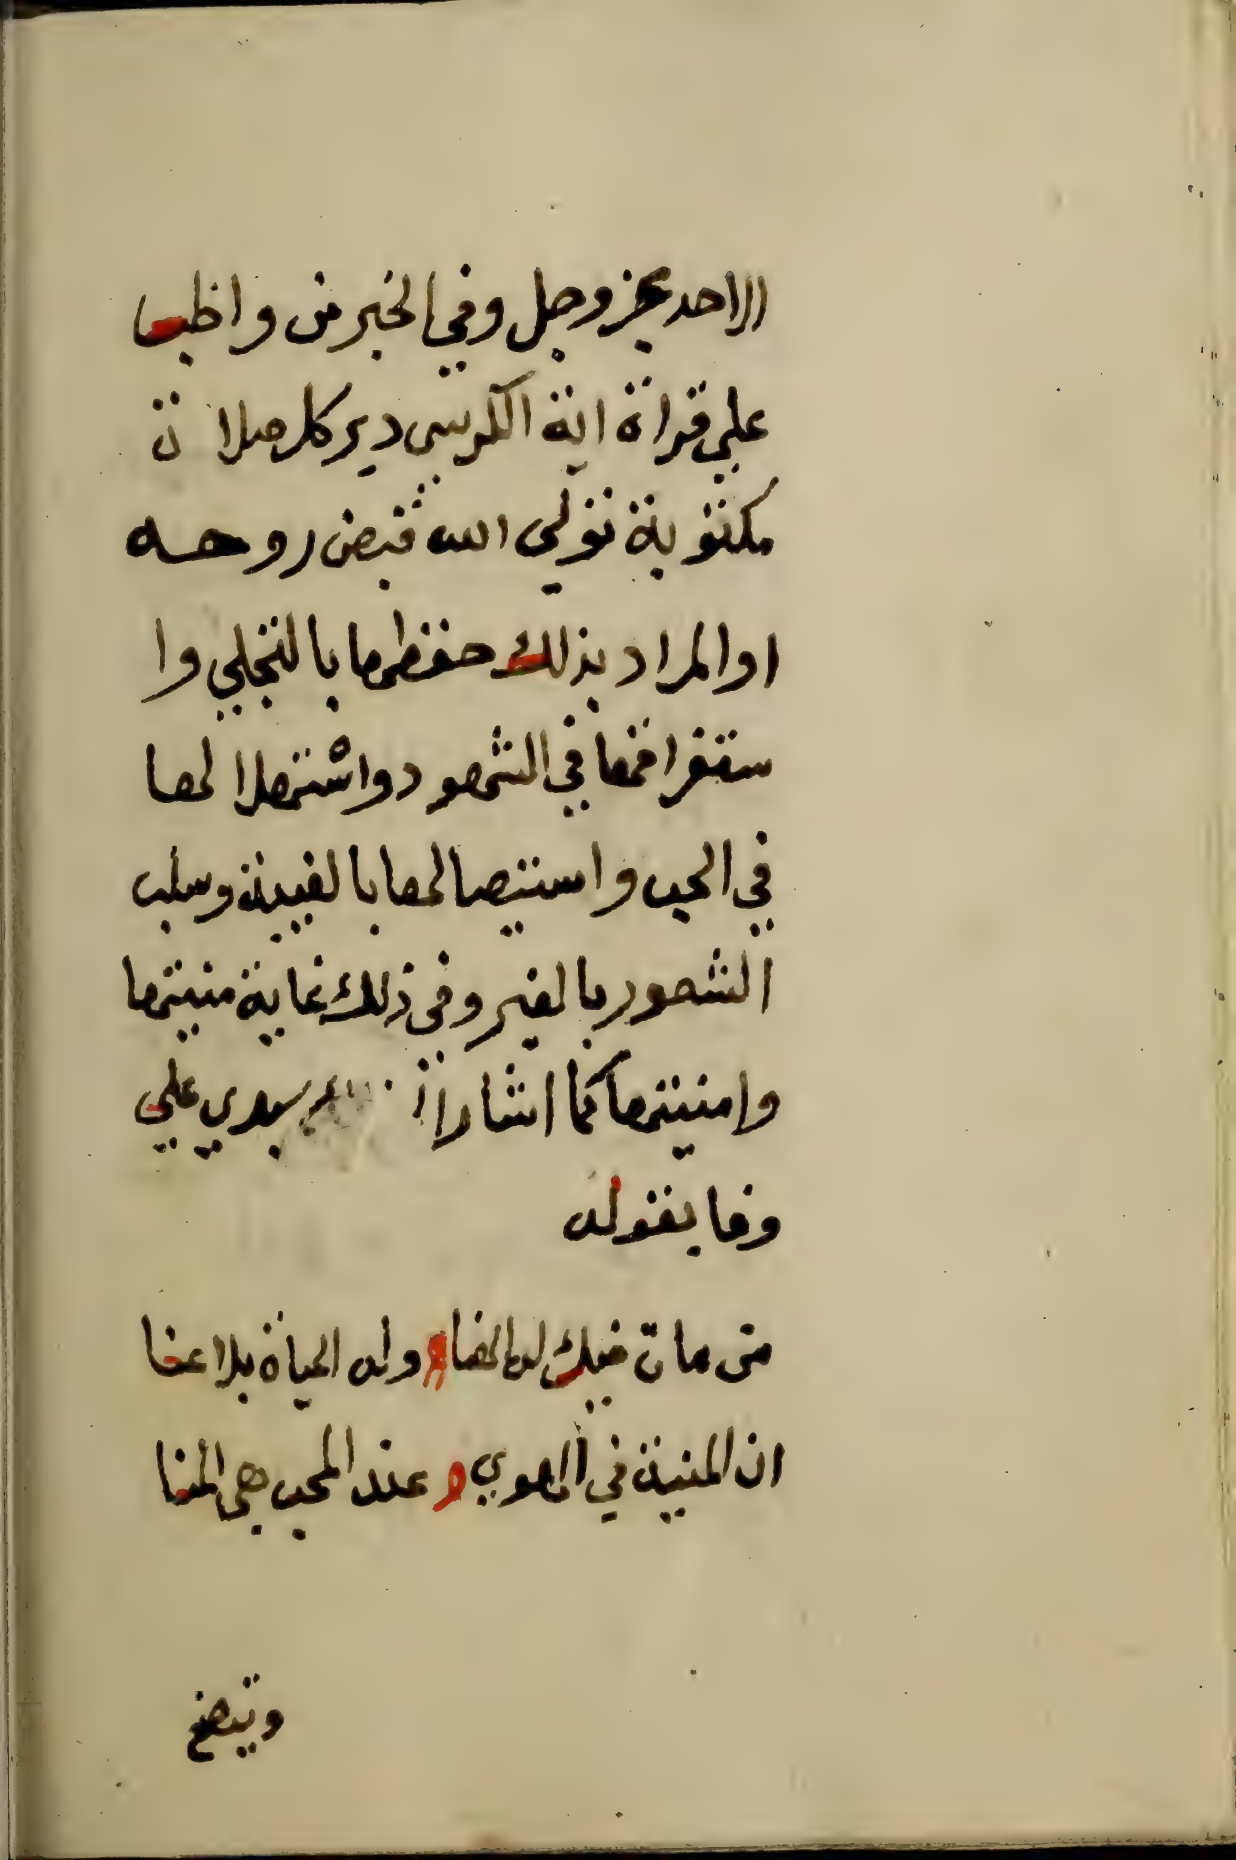 الاحد عز وجل وفي الخبر من واظب
علي قراة اية الكرسي دبر كل صلاة
مكتوبة تولي الله قبض روحه
او المراد بذلك حفظها بالتجلي وا
ستغراقها في الشهود واشتغالها
في الحب واستيصالها بالغيبة وسلب
الشعور بالغير وفي ذلك غاية منيتها
وامنيتها كما اشار سيدي علي
وفا بقوله
من مات فيك له الهنا وله الحياة بلا عنا
ان المنية في الهوي عند المحب هي المنا
ويتضح